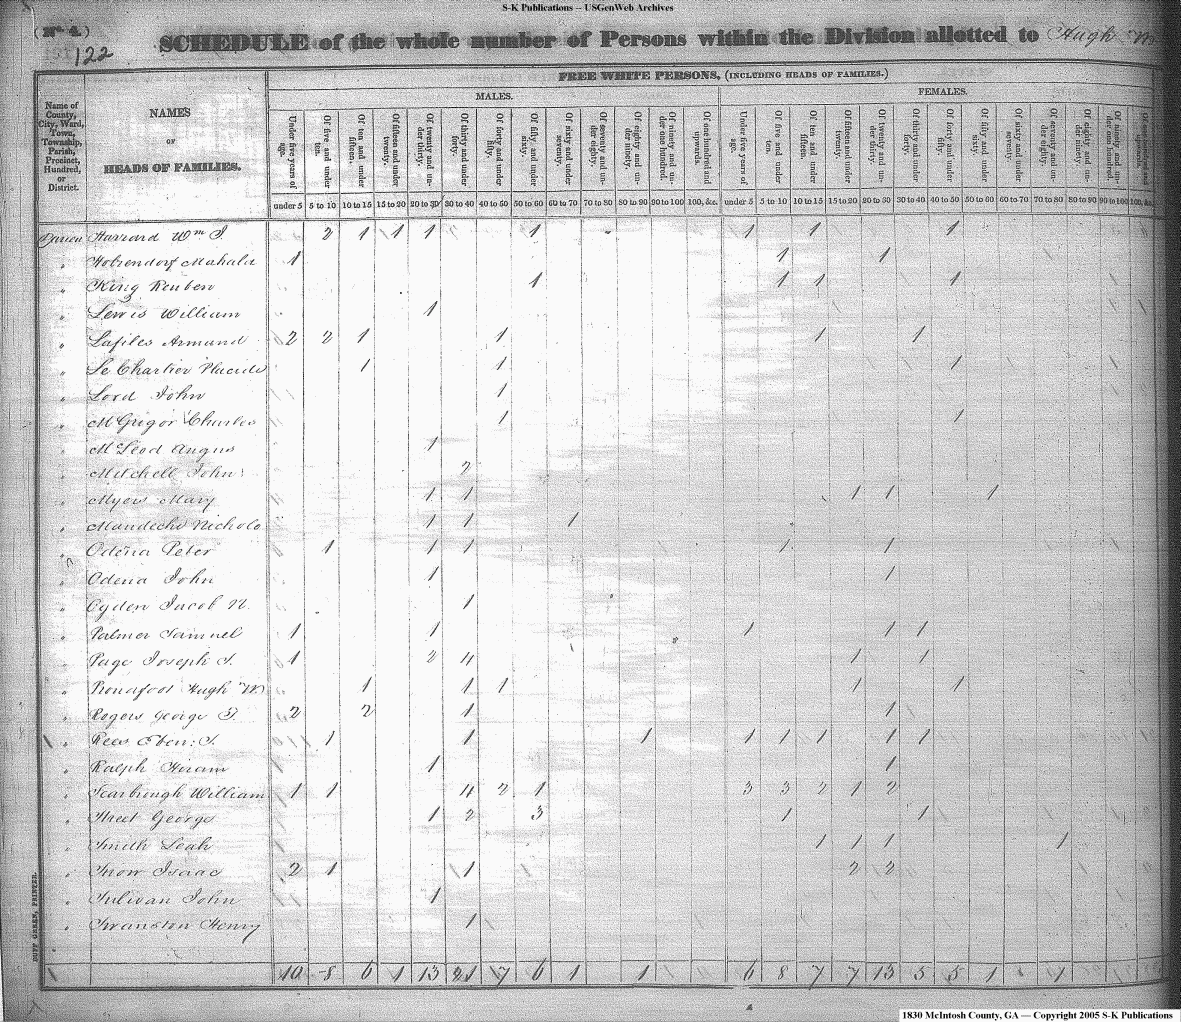 S-K Publications -- USGenWeb Archives
(No 4.)
122
SCHEDULE of the whole number of Persons within the Division allotted to Hugh
FREE WHITE PERSONS, (INCLUDING HEADS OF FAMILIES.)
MALES.
FEMALES.
Name of County, City, Ward, Town, Township, Parish, Precinct, Hundred, or District.
NAMES
OF
HEADS OF FAMILIES.
Under five years of age. Of five and under ten. Of ten and under fifteen. Of fifteen and under twenty. Of twenty and under thirty. Of thirty and under forty. Of forty and under fifty. Of fifty and under sixty. Of sixty and under seventy. Of seventy and under eighty. Of eighty and under ninety. Of ninety and under one hundred. Of one hundred and upwards. Under five years of age. Of five and under ten. Of ten and under fifteen. Of fifteen and under twenty. Of twenty and under thirty. Of thirty and under forty. Of forty and under fifty. Of fifty and under sixty. Of sixty and under seventy. Of seventy and under eighty. Of eighty and under ninety. Of ninety and under one hundred.
under 5 5 to 10 10 to 15 15 to 20 20 to 30 30 to 40 40 to 50 50 to 60 60 to 70 70 to 80 80 to 90 90 to 100 100, &c. under 5 5 to 10 10 to 15 15 to 20 20 to 30 30 to 40 40 to 50 50 to 60 60 to 70 70 to 80 80 to 90 90 to 100 100, &c.
Darien Harrard Wm J. 2 1 1 1 1 1 1 1
" Holzendorf Mahala 1 1 1
" King Reuben 1 1 1 1
" Lewis William 1
" Lafiles Armand 2 2 1 1 1 1
" Le Chartier Placide 1 1 1
" Lord John 1
" McGrigor Charles 1 1
" McLeod Angus 1
" Mitchell John 2
" Myers Mary 1 1 1 1 1
" Nicholo 1 1 1
" Odena Peter 1 1 1 1 1
" Odena John 1 1
" Ogden Jacob N. 1
" Palmer Samuel 1 1 1 1 1
" Page Joseph S. 1 2 4 1 1
" Hugh W 1 1 1 1 1
" Rogers George T. 2 2 1 1
" Rees Eben: S. 1 1 1 1 1 1 1 1
" Ralph Hiram 1 1
" Scarbrough William 1 1 4 2 1 3 3 2 1 2
" Street George 1 2 3 1 1
" Smith Leah 1 1 1 1
" Snow Isaac 2 1 1 2 2
" Sulivan John 1
" Swanston Henry 1
10 8 6 1 13 21 7 6 1 1 6 8 7 7 13 5 5 1 1
DUFF GREEN, PRINTER.
1830 McIntosh County, GA — Copyright 2005 S-K Publications